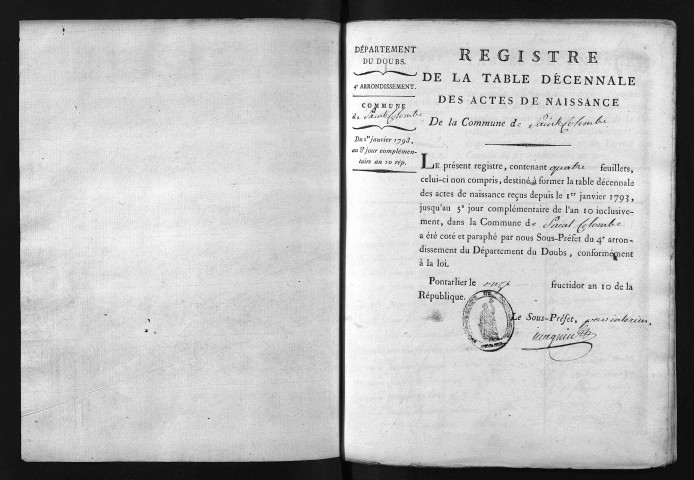 DÉPARTEMENT
DU DOUBS.
4e ARRONDISSEMENT.
COMMUNE
de Sainte Colombe
Du 1er janvier 1793,
au 5e jour complémen-
taire an 10 rép.
REGISTRE
DE LA TABLE DÉCENNALE
DES ACTES DE NAISSANCE
De la Commune de Sainte Colombe
LE présent registre, contenant quatre feuillets,
celui-ci non compris, destiné à former la table décennale
des actes de naissance reçus depuis le 1er janvier 1793,
jusqu'au 5e jour complémentaire de l'an 10 inclusive-
ment, dans la Commune de Saint Colombe
a été coté et paraphé par nous Sous-Préfet du 4e arron-
dissement du Département du Doubs, conformément
à la loi.
Pontarlier le onze fructidor an 10 de la
République.
Le Sous-Préfet, par interim